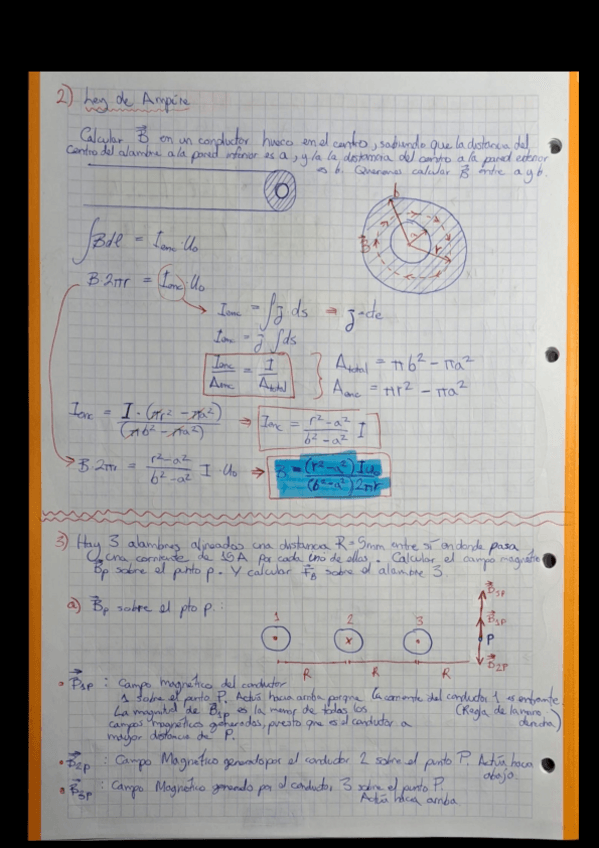 2) Ley de Ampère
Calcular B⃗ en un conductor hueco en el centro, sabiendo que la distancia del
centro del alambre a la pared inferior es a, y la distancia del centro a la pared exterior
es b. Queremos calcular B⃗ entre a y b.
b
a
r
B⃗
∫B dl = Ienc · U₀
B · 2πr = Ienc · U₀
Ienc = ∫j · ds ⇒ j = cte
Ienc = j ∫ds
Ienc/Aenc = I/Atotal
Atotal = πb² − πa²
Aenc = πr² − πa²
Ienc = I · (πr² − πa²)/(πb² − πa²) ⇒ Ienc = (r² − a²)/(b² − a²) I
B · 2πr = (r² − a²)/(b² − a²) I U₀ ⇒ B = (r² − a²) I U₀/(b² − a²) 2πr
3) Hay 3 alambres alineados una distancia R = 5mm entre sí en donde pasa
una corriente de 15A por cada uno de ellos. Calcular el campo magnético
B⃗p sobre el punto p. Y calcular F⃗B sobre el alambre 3.
a) B⃗p sobre el pto p.:
1 2 3
B⃗3P
B⃗1P
P
B⃗2P
R R R
• B⃗1P : Campo magnético del conductor
1 sobre el punto P. Actúa hacia arriba porque la corriente del conductor 1 es entrante.
La magnitud de B⃗1P es la menor de todos los (Regla de la mano derecha)
campos magnéticos generados, puesto que es el conductor a
mayor distancia de P.
• B⃗2P : Campo Magnético generado por el conductor 2 sobre el punto P. Actúa hacia
abajo.
• B⃗3P : Campo Magnético generado por el conductor 3 sobre el punto P.
Actúa hacia arriba